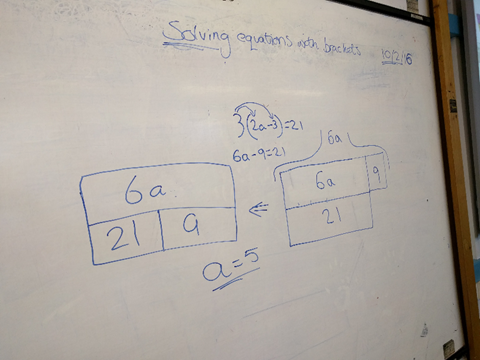 Solving equations with brackets 10/2/16
3(2a-3)=21
6a-9=21
6a
6a 9
21
6a
21 9
a=5